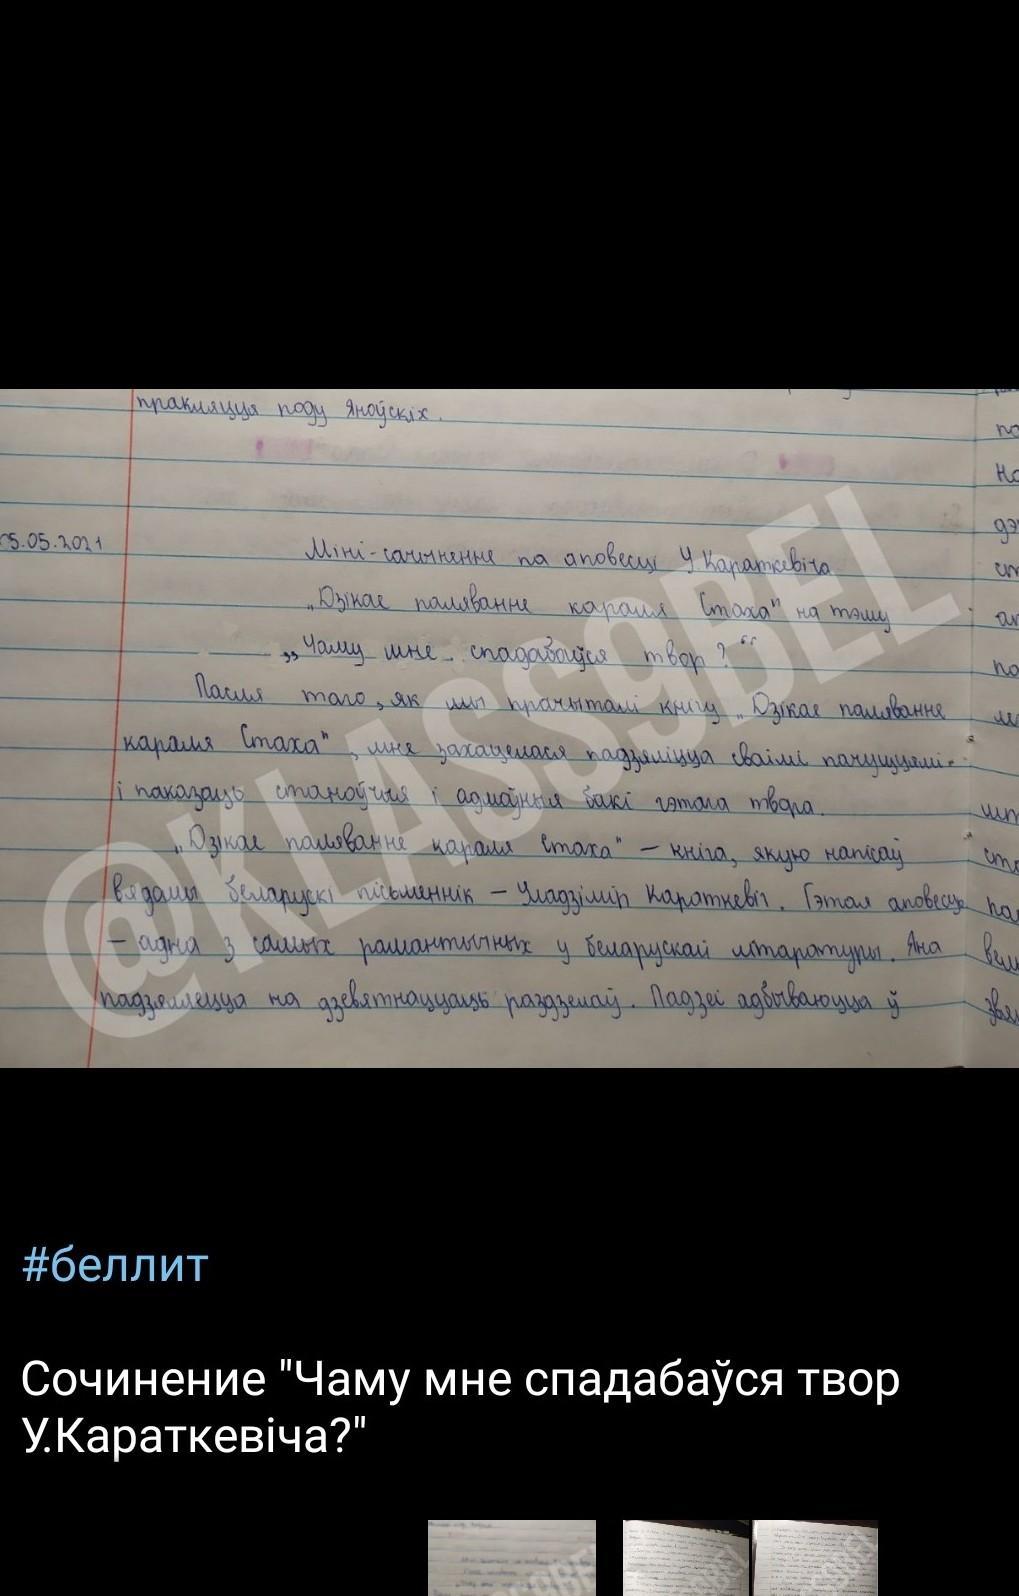 пракляцця роду Яноўскіх.
5.05.2021
Міні-сачыненне па аповесці У Караткевіча
„Дзікае паляванне караля Стаха" на тэму
„Чаму мне спадабаўся твор?“
Пасля таго, як мы прачыталі кнігу „Дзікае паляванне
караля Стаха", мне захацелася падзяліцца сваімі пачуццямі
і паказаць станоўчыя і адмоўныя бакі гэтага твора.
„Дзікае паляванне караля Стаха" – кніга, якую напісаў
вядомы беларускі пісьменнік – Уладзімір Караткевіч. Гэтая аповесць
– адна з самых рамантычных у беларускай літаратуры. Яна
падзяляецца на дзевятнаццаць раздзелаў. Падзеі адбываюцца ў
@KLASS9BEL
#беллит
Сочинение "Чаму мне спадабаўся твор
У.Караткевіча?"